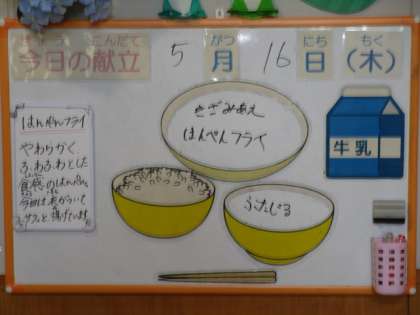 きょう こんだて
今日の献立
5
がつ
月
16
にち
日
もく
(木)
きざみあえ
はんぺんフライ
牛乳
ぶたじる
はんぺんフライ
やわらかく
ふわふわとした
食感のはんぺん。
今回は衣がついて
サクッと揚げています